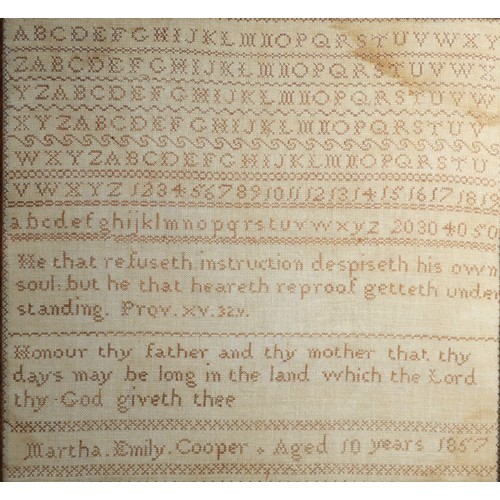 ABCDEFGHIJKLMNOPQRSTUVWX
ZABCDEFGHIJKLMNOPQRSTUVWX
YZABCDEFGHIJKLMNOPQRSTUVW
XYZABCDEFGHIJKLMNOPQRSTUV
WXYZABCDEFGHIJKLMNOPQRSTU
VWXYZ 12345678910111213141516171819
abcdefghijklmnopqrstuvwxyz 20304050
He that refuseth instruction despiseth his own
soul: but he that heareth reproof getteth under
standing. Prov. XV. 32. v.
Honour thy father and thy mother that thy
days may be long in the land which the Lord
thy God giveth thee
Martha. Emily. Cooper. Aged 10 years 1857